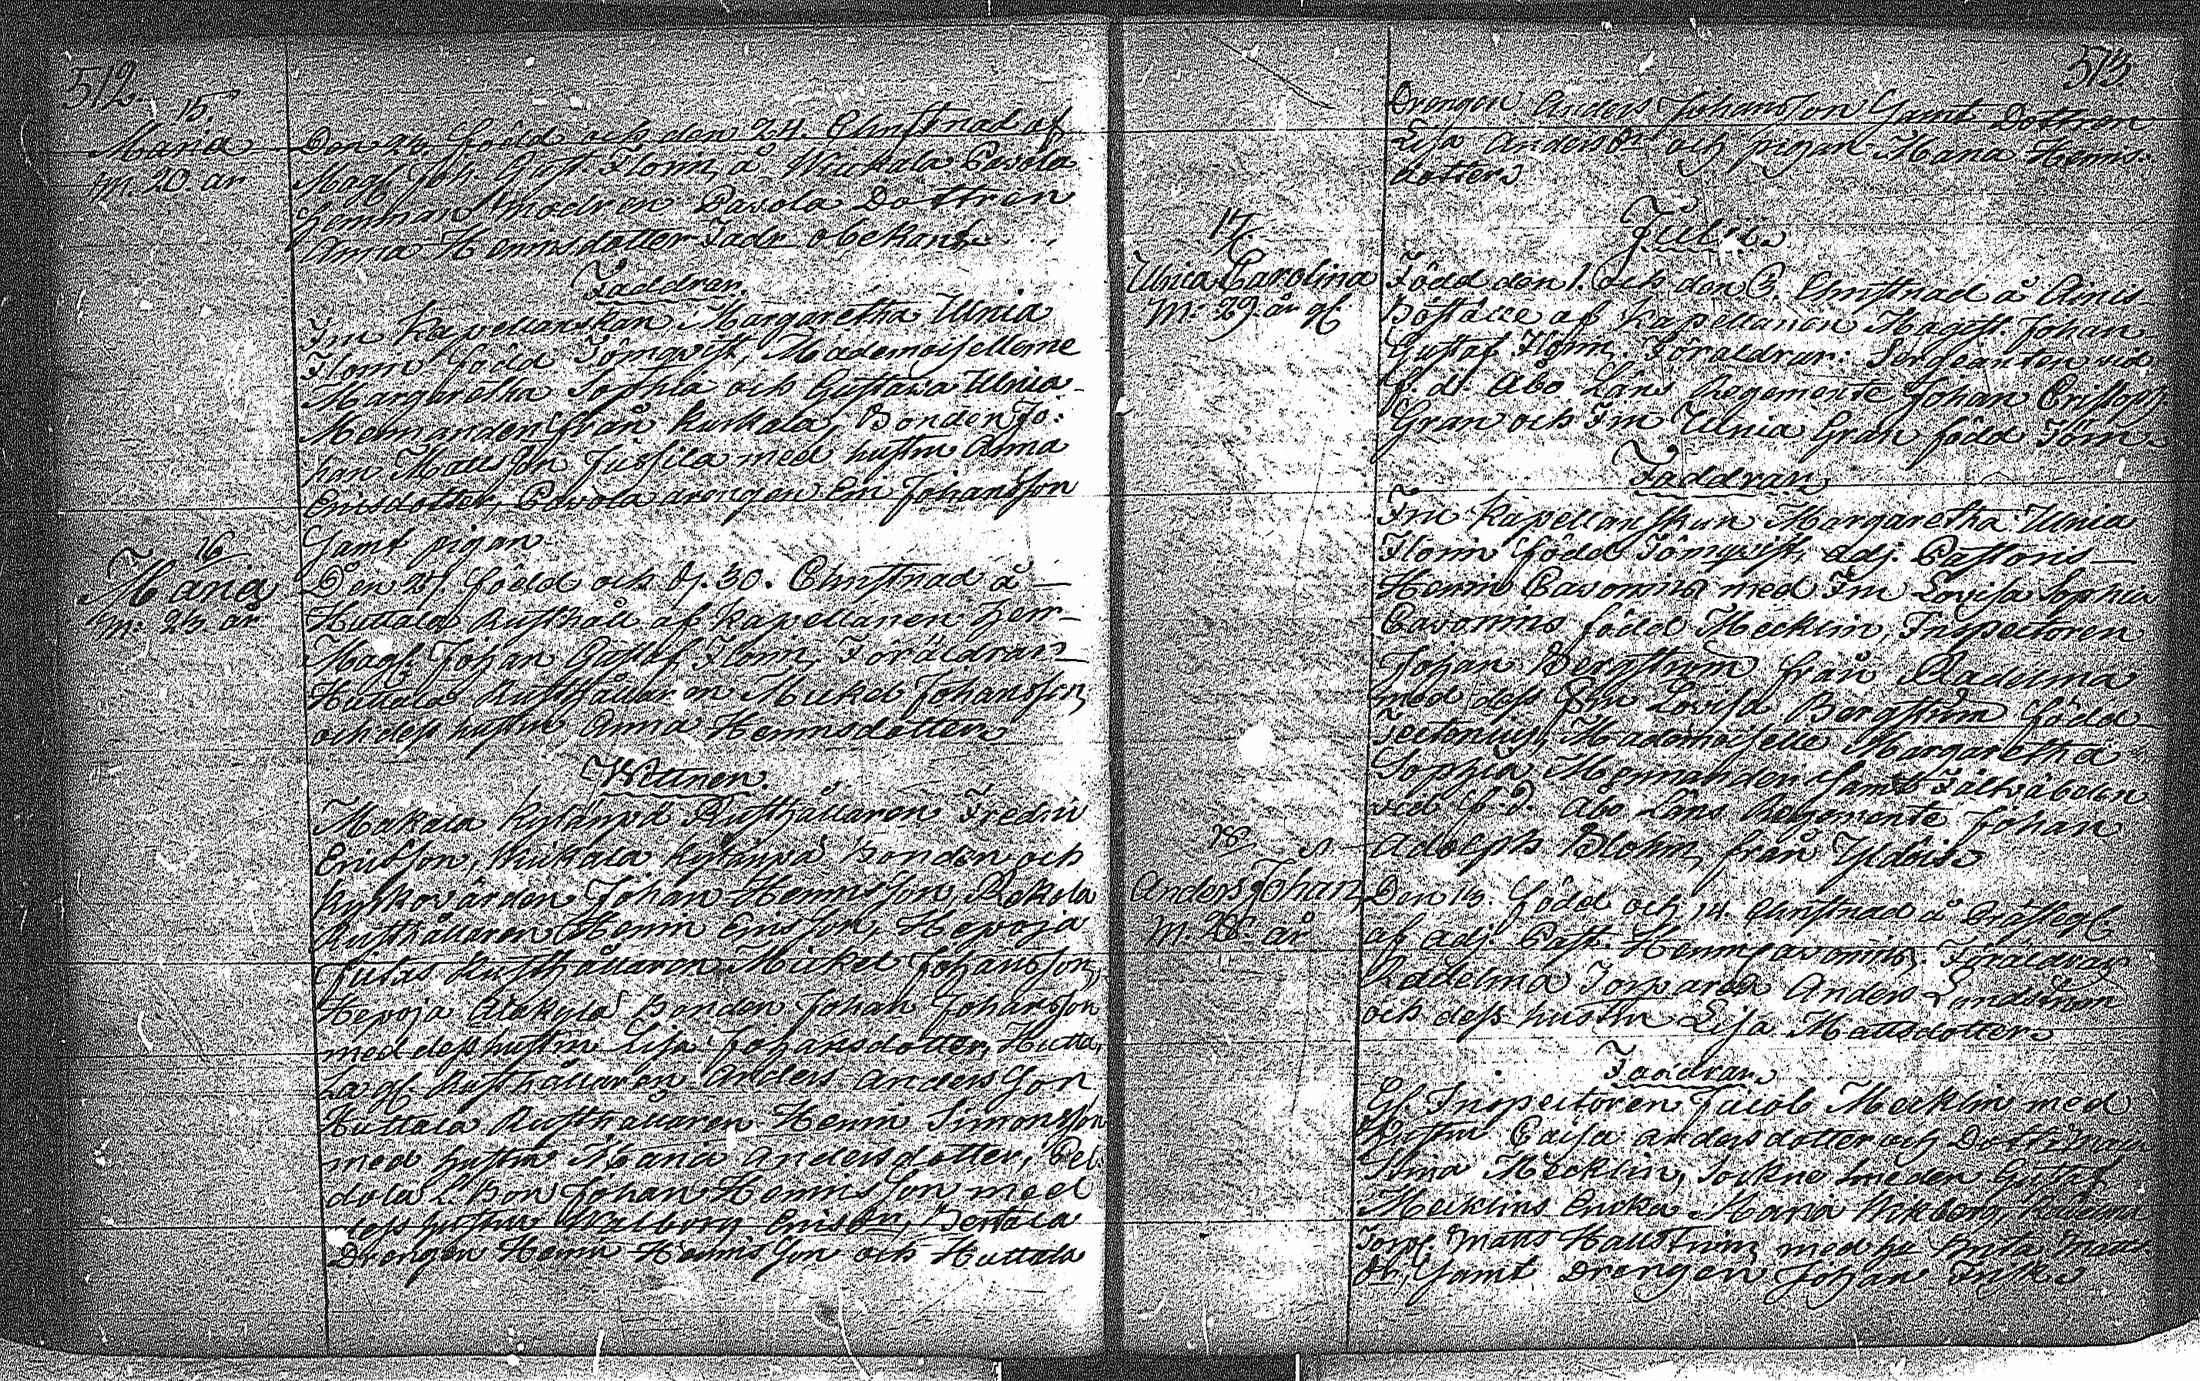 512.
15.
Maria
m. 20. år
Den 23 född och den 24. Christnad af
Mag. Joh. Gust. Florin, å Wiukala Pavola
hemman modren Pavola Dottren
Anna Henricsdotter Fadr obekant.
Faddrar
Fru Kapellanskan Margaretha Ulrica
Florin född Törnqvist, Mademoisellerne
Margaretha Sophia och Gustava Ulrica
Memanden från Kurkala, Bonden Jo-
han Matsson Jussila med hustru Anna
Ericsdotter, Pavola drengen Eric Johansson
samt pigan
16
Maria
m. 23. år
Den 27. född och d. 30. Christnad å
Huttala Rusthåll af Kapellanen Herr
Mag. Johan Gustaf Florin, Föräldrar
Huttala Rusthållaren Mickel Johansson,
och dess hustru Anna Henricsdotter
Wittnen.
Makala Kylänpä Rusthållaren Fredric
Ericsson, Wiukala Kylänpä Bonden och
Kyrkovärden Johan Henricsson, Kokola
Rusthållaren Henric Ericsson, Hepoja
Jutas Rusthållaren Mickel Johansson,
Hepoja Alakylä Bonden Johan Johansson
med dess hustru Lisa Johansdotter, Hutta-
la gl. Rusthållaren Anders Andersson
Huttala Rusthållaren Henric Simonsson
med hustru Maria Andersdotter, Pel-
dola Bon Johan Henricsson med
dess hustru Walborg Ericsdr, Bertala
Drengen Henric Henricsson och Huttala
513
Drengen Anders Johansson samt Dottren
Lisa Andersdr och pigan Maria Henrics-
dotter
Julius
17
Ulrica Carolina
M. 29. år gl.
Född den 1. och den 3. Christnad å Ainis
Boställe af Kapellanen Magist. Johan
Gustaf Florin. Föräldrar: Sergeanten vid
f. d. Åbo Läns Regemente Johan Cristoph
Gran och Fru Ulrica Gran född Törn.
Faddrar
Fru Kapellanskan Margaretha Ulrica
Florin född Törnqvist, Adj. Pastoris
Henric Cavonius med Fru Lovisa Sophia
Cavonius född Mecklin, Inspectoren
Johan Bergström från Radelma
med dess Fru Lovisa Bergström född
Mademoiselle Margaretha
Sophia Memanden samt Fältväbelen
ved f. d. Åbo Läns Regemente Johan
Adolph Blohm från Yldöis
18
Anders Johan,
M: 28. år
Den 13. född och 14. Christnad å
af Adj. Past. Henric Cavonius. Föräldrar
Radelma Torparen Anders Landström
och dess hustru Lisa Mattsdotter
Faddrar
Gl. Inspectoren Jacob Mecklin med
hustru Caisa Andersdotter och Dottren
Mecklin, Sockne smeden Gustaf
Mecklins Enka Maria Wikberg, Radelma
Torp. Matts Hallström med h. Brita Matts-
dr, samt Drengen Johan Frisk